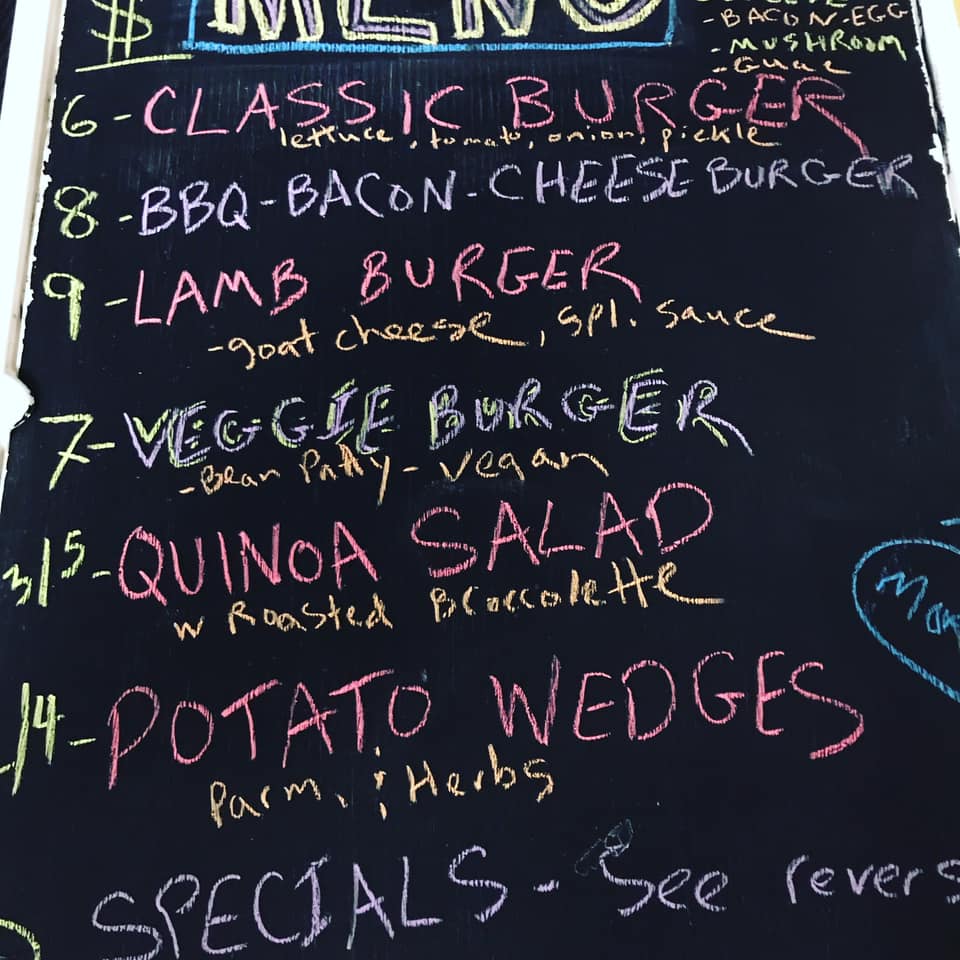 $ MENU
- BACON-EGG
- MUSHROOM
- Guac
6 - CLASSIC BURGER
lettuce, tomato, onion, pickle
8 - BBQ-BACON-CHEESEBURGER
9 - LAMB BURGER
- goat cheese, spl. sauce
7 - VEGGIE BURGER
- Bean Patty - vegan
3/5 - QUINOA SALAD
w Roasted Broccolette
/4 - POTATO WEDGES
Parm. & Herbs
SPECIALS - See revers